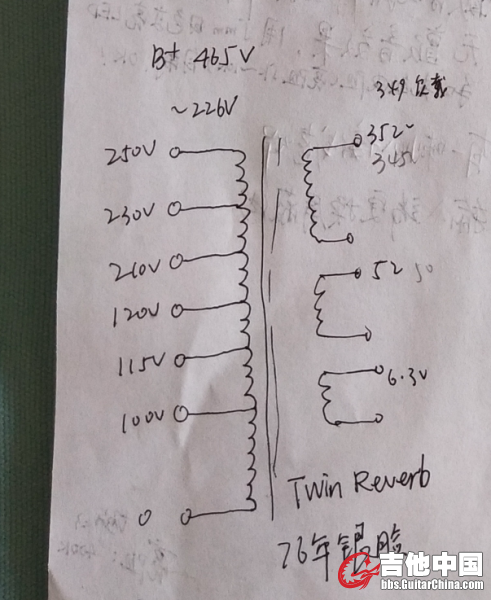 B+ 465V
~226V
349 负载
250V
352~
345V
230V
210V
52 50
120V
115V
6.3V
100V
0
Twin Reverb
76年银脸
吉他中国
bbs.GuitarChina.com